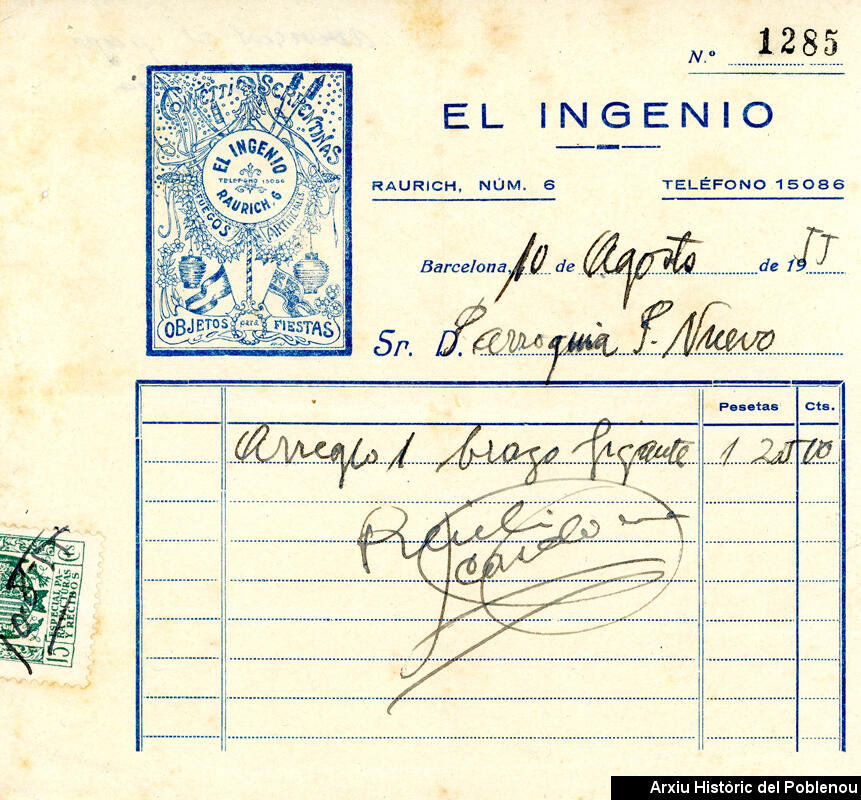 N.º 1285
CONFETTI SERPENTINAS
EL INGENIO
TELEFONO 15086
RAURICH. 6
FUEGOS ARTIFICIALES
OBJETOS para FIESTAS
EL INGENIO
RAURICH, NÚM. 6
TELÉFONO 15086
Barcelona, 10 de Agosto de 1955
Sr. D. Parroquia P. Nuevo
Pesetas Cts.
Arreglo 1 brazo gigante 1 25 00
ESPECIAL PA-
RA FACTURAS
Y RECIBOS
15
Arxiu Històric del Poblenou